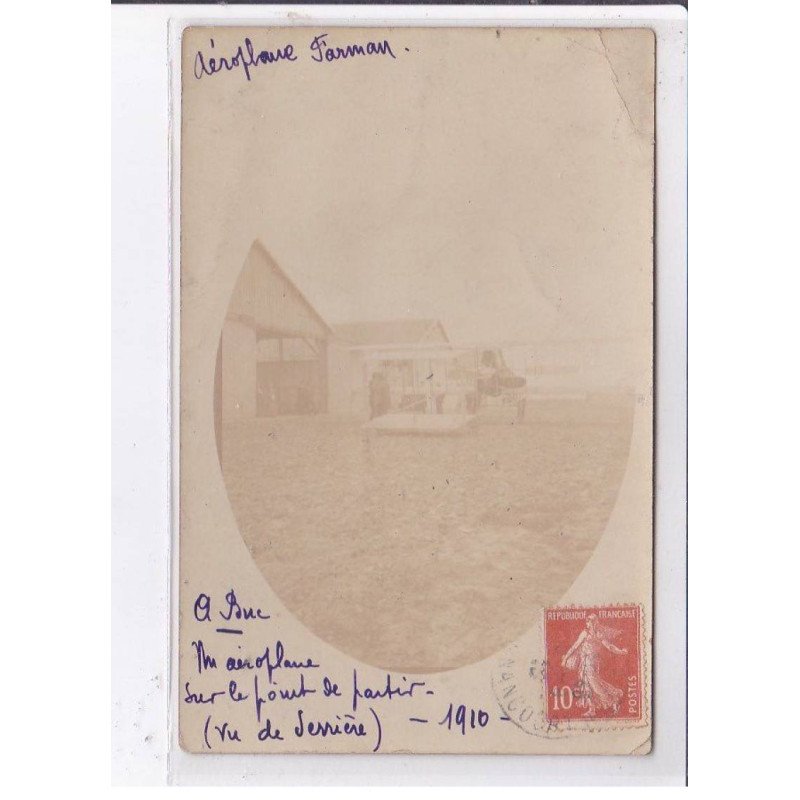 Aéroplane Farman.
A Buc
Un aéroplane
sur le point de partir -
(vu de derrière) - 1910 -
REPUBLIQUE FRANÇAISE
10
POSTES